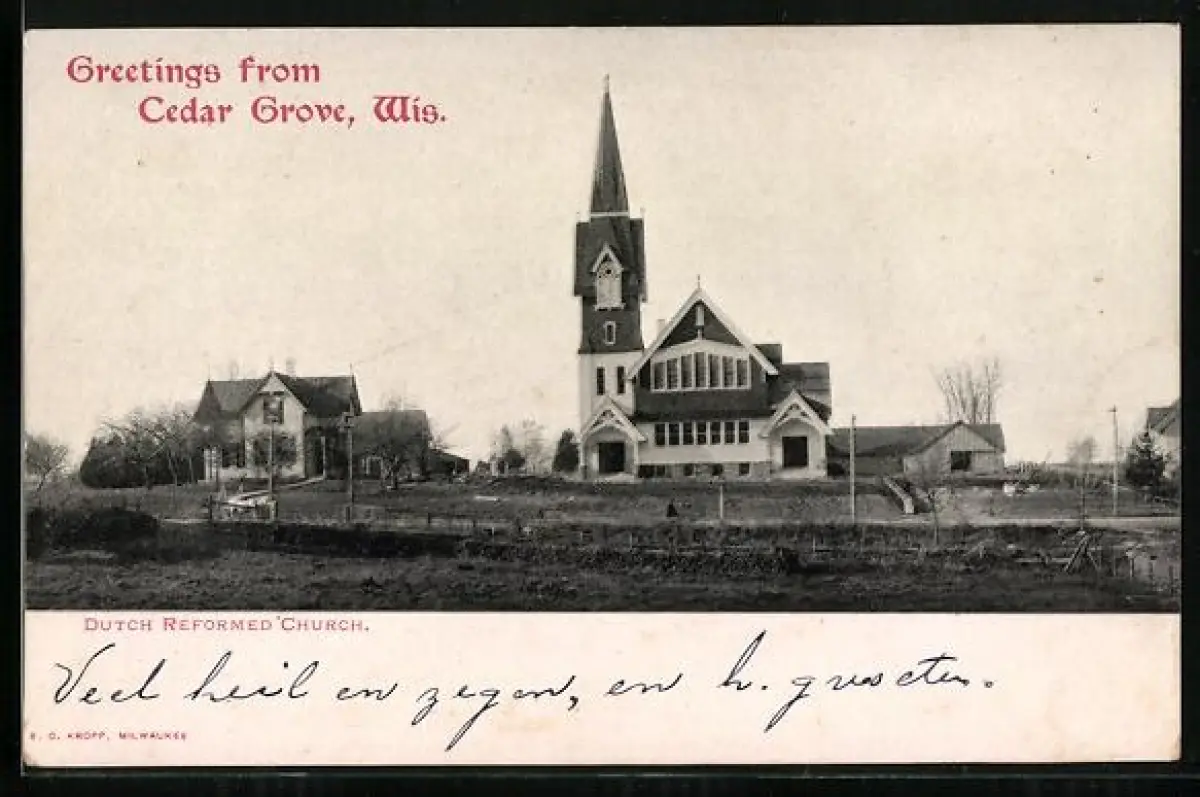 Greetings from
Cedar Grove, Wis.
DUTCH REFORMED CHURCH.
Veel heil en zegen, en h. groeten.
E. C. KROPP, MILWAUKEE